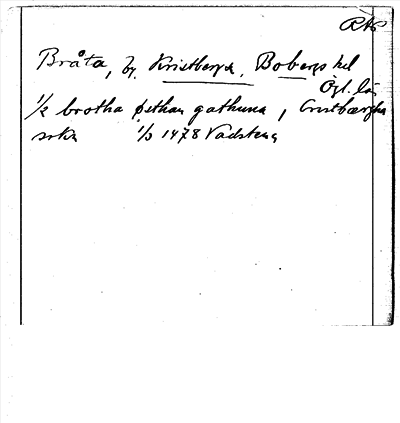 RAP
Bråta, by, Kristberga, Bobergs hd
Ögl. län
1/2 brotha gathuna, Cristbærgha
sokn 1/5 1478 Vadstena